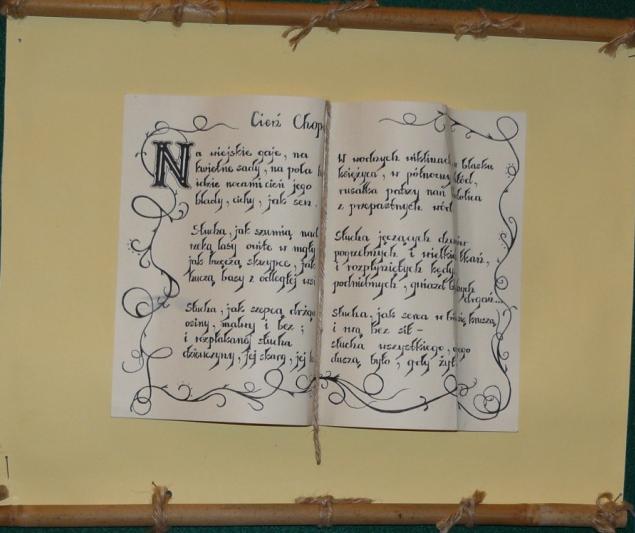 Cień Chop
Na wiejskie gaje, na
kwietne sady, na pola
idzie nocami cień jego
blady, cichy, jak sen.
Słucha, jak szumią nad
rzeką lasy owite w mgły
jak brzęczą skrzypce, jak
huczą basy z odległej wsi
Słucha, jak szepcą drżące
osiny, malwy i bez;
i rozpłakana słucha
dziewczyny, jej skarg, jej
W wodnych wiklinach, blasku
księżyca, w północny chłód,
rusałka patrzy nań
z przepastnych wód
Słucha jęczących dzwonów
pogrzebnych i wielkich łkań,
i rozpłyniętych kędyś
podniebnych, gwiazd
drgań...
słucha, jak serca w kruszą
i rwą bez sił -
słucha wszystkiego, czego
duszą było, gdy żył.